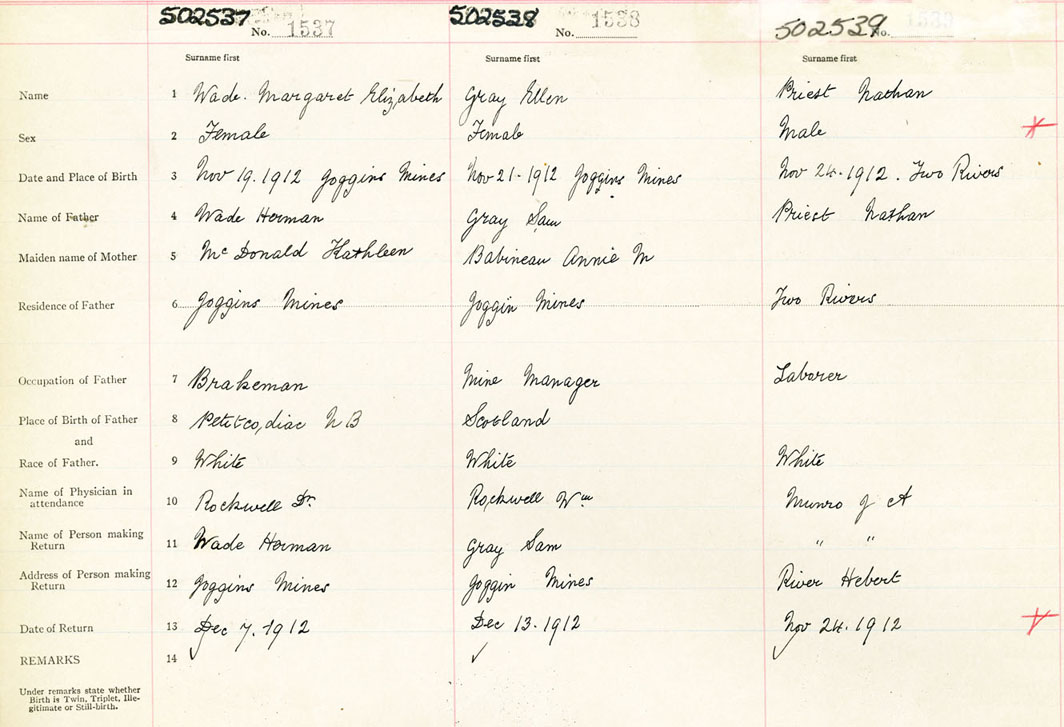 502537 502538 502539
No. 1537 No. 1538 No. 1539
Surname first Surname first Surname first
Name 1 Wade. Margaret Elizabeth Gray Ellen Priest Nathan
Sex 2 Female Female Male
Date and Place of Birth 3 Nov 19. 1912 Joggins Mines Nov 21-1912 Joggins Mines Nov 24-1912. Two Rivers
Name of Father 4 Wade Herman Gray Sam Priest Nathan
Maiden name of Mother 5 Mc Donald Kathleen Babineau Annie M
Residence of Father 6 Joggins Mines Joggin Mines Two Rivers
Occupation of Father 7 Brakeman Mine Manager Laborer
Place of Birth of Father 8 Petitcodiac N B Scotland
and
Race of Father. 9 White White White
Name of Physician in
attendance 10 Rockwell Dr. Rockwell Wm Munro J A
Name of Person making
Return 11 Wade Herman Gray Sam " "
Address of Person making
Return 12 Joggins Mines Joggin Mines River Hebert
Date of Return 13 Dec 7. 1912 Dec 13. 1912 Nov 24. 1912
REMARKS 14
Under remarks state whether
Birth is Twin, Triplet, Ille-
gitimate or Still-birth.